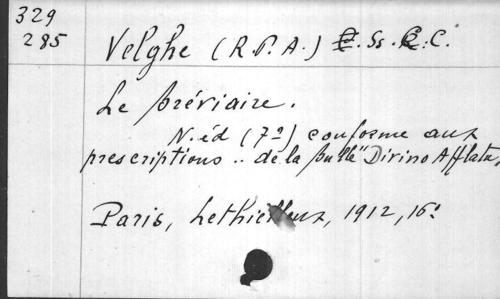 329
285
Velghe (R.P.A.) C.Ss.C.C.
Le bréviaire.
N. éd (7ª) conforme aux
prescriptions .. de la bulle "Divino Afflatu,
Paris, Lethielleux, 1912, 16º